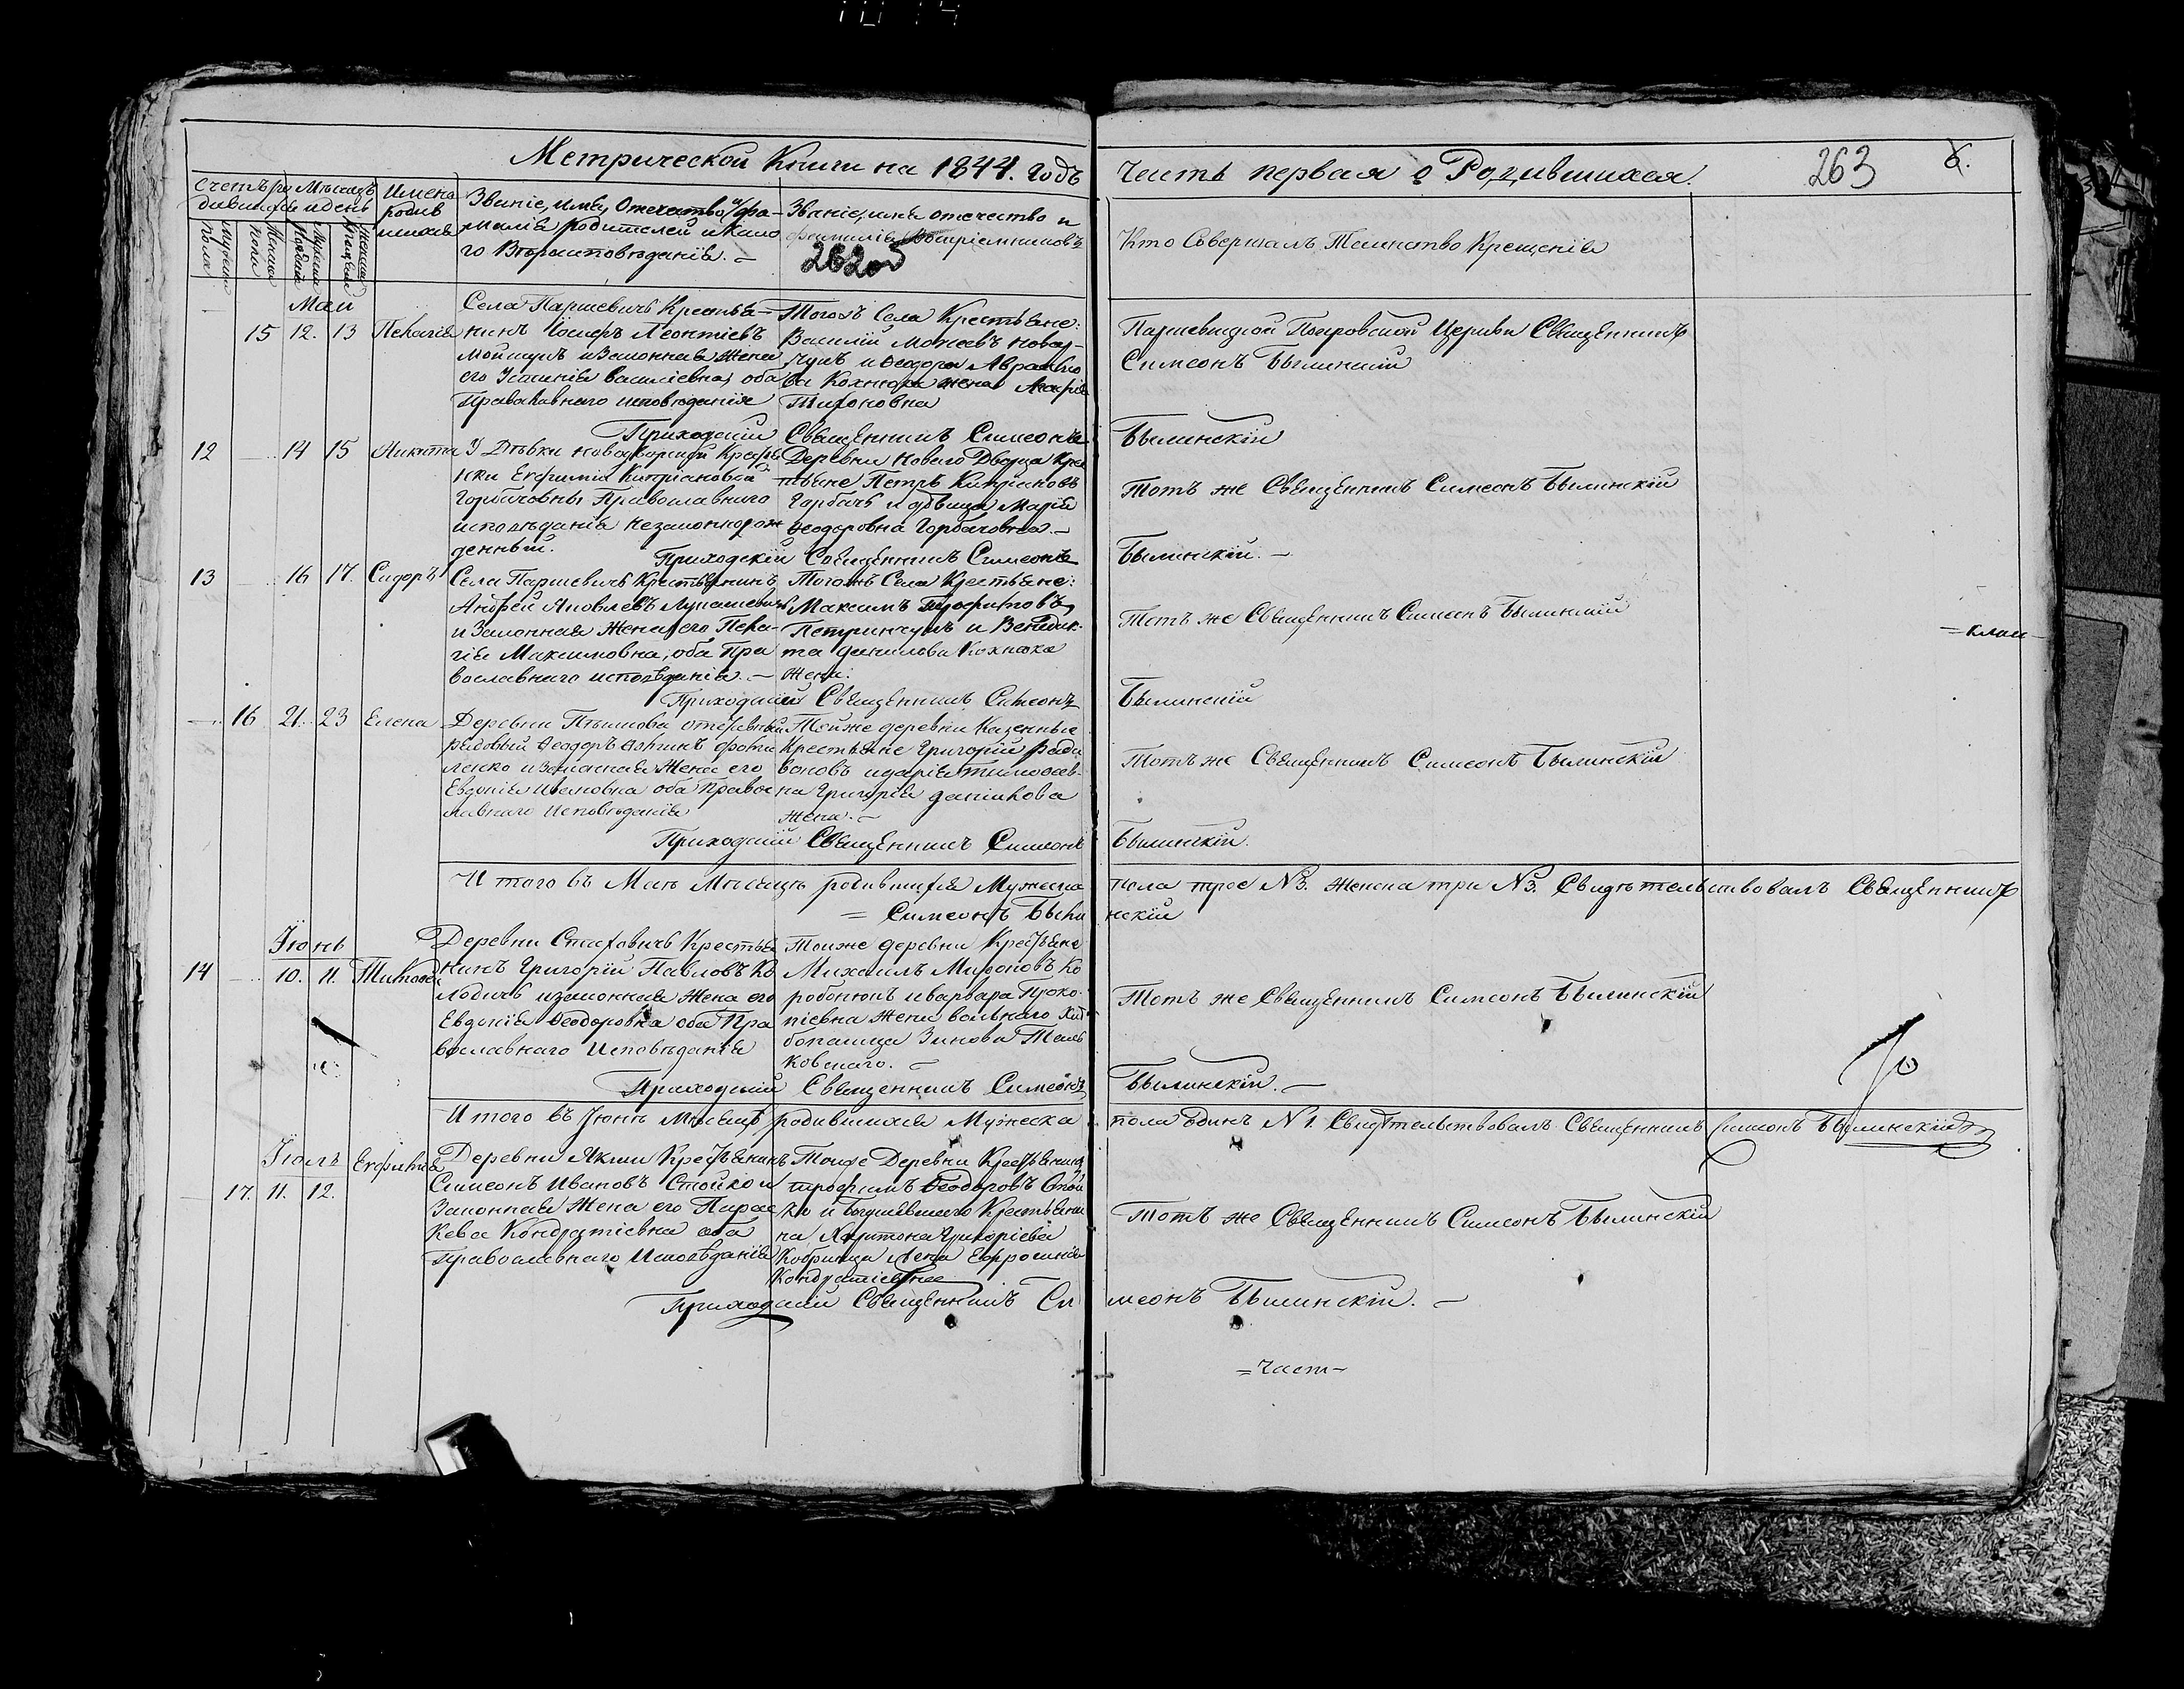 Метрической Книги на 1844. Годъ
Часть первая о Родившихся.
263
6.
Счетъ ро
дившихся
Мѣсяцъ
и день
Имена
родив
шихся
Званіе, имя, Отчество, и фа-
милія родителей и како
го Вѣроисповѣданія. -
Званіе, имя отечество и
фамилія Воспріемниковъ
262 об
Кто Совершалъ Таинство Крещенія
Мужеска
пола
Женска
пола
Май
15 12. 13 Пелагія
Села Паршевичъ Крестья-
нинъ Іосифъ Леонтіевъ
и Законная Жена
его Устинія Василіевна, оба
православнаго исповѣданія
Тогожъ Села Крестьяне:
Василій
и Ѳеодора
жена
Тихоновна
Паршевицкой Покровской Церкви Священникъ
Симеонъ Былинскій
Приходскій Священникъ Симеонъ Былинскій
12 14 15 Никита
У Дѣвки Новодворской Крестья
нки Евфиміи Кипріановой
Горбачовны Православнаго
исповѣданія незаконнорож
денный.
Деревни Новаго Дворца Кре
стьяне Петръ Кипріановъ
Горбачъ и дѣвица Марія
Ѳеодоровна Горбачовна. -
Тотъ же Священникъ Симеонъ Былинскій
Приходскій Священникъ Симеонъ Былинскій. -
13 16 17. Сидоръ
Села Паршевичъ Крестьянинъ
Андрей Яковлевъ Лукашевичъ
и Законная Жена его Пела-
гія Максимовна, оба Пра
вославнаго исповѣданія. -
Тогожъ Села Крестьяне:
Максимъ Трофимовъ
Петринчукъ и Венедик-
та Данилова Кохнюка
Жена.
Тотъ же Священникъ Симеонъ Былинскій
Приходскій Священникъ Симеонъ Былинскій
16 21. 23 Елена
Деревни отставный
рядовый Ѳеодоръ
и Законная Жена его
Евдокія Ивановна оба Правос
лавнаго Исповѣданія
Тойже деревни Казенные
Крестьяне Григорій Роди
воновъ и Дарія Тимоѳеев-
на Григорія Данилова
жена. -
Тотъ же Священникъ Симеонъ Былинскій
Приходскій Священникъ Симеонъ Былинскій.
Итого въ Маѣ Мѣсяцѣ родившихся Мужеска пола трое №3. Женска три №3. Свидѣтельствовалъ Священникъ
= Симеонъ Былинскій
Іюнь
14 10. 11. Тимоѳей
Деревни Стаховичъ Крестья
нинъ Григорій Павловъ Ко
лодичъ и законная Жена его
Евдокія Ѳеодоровна оба Пра
вославнаго Исповѣданія
Тойже деревни Крестьяне
Михаилъ Мироновъ Ко
робонюкъ и Варвара Проко-
піевна Жена вольнаго Хлѣ
бопашца Зиновія
ковскаго. -
Тотъ же Священникъ Симеонъ Былинскій
Приходскій Священникъ Симеонъ Былинскій. -
Итого въ Іюнѣ Мѣсяцѣ родившихся Мужеска пола Одинъ №1. Свидѣтельствовалъ Священникъ Симеонъ Былинскій
Іюль
17. 11. 12. Евфимія
Деревни Крестьянинъ
Симеонъ Ивановъ Стойко и
Законная Жена его Парас
кева Кондратіевна оба
Православнаго Исповѣданія
Тойже Деревни Крестьянинъ
Трофимъ Ѳеодоровъ Стой
ко и Крестьяни
на Харитона Григоріева
Кобринца Жена Евфросинія
Кондратіевна
Тотъ же Священникъ Симеонъ Былинскій
Приходскій Священникъ Симеонъ Былинскій. -
= част -